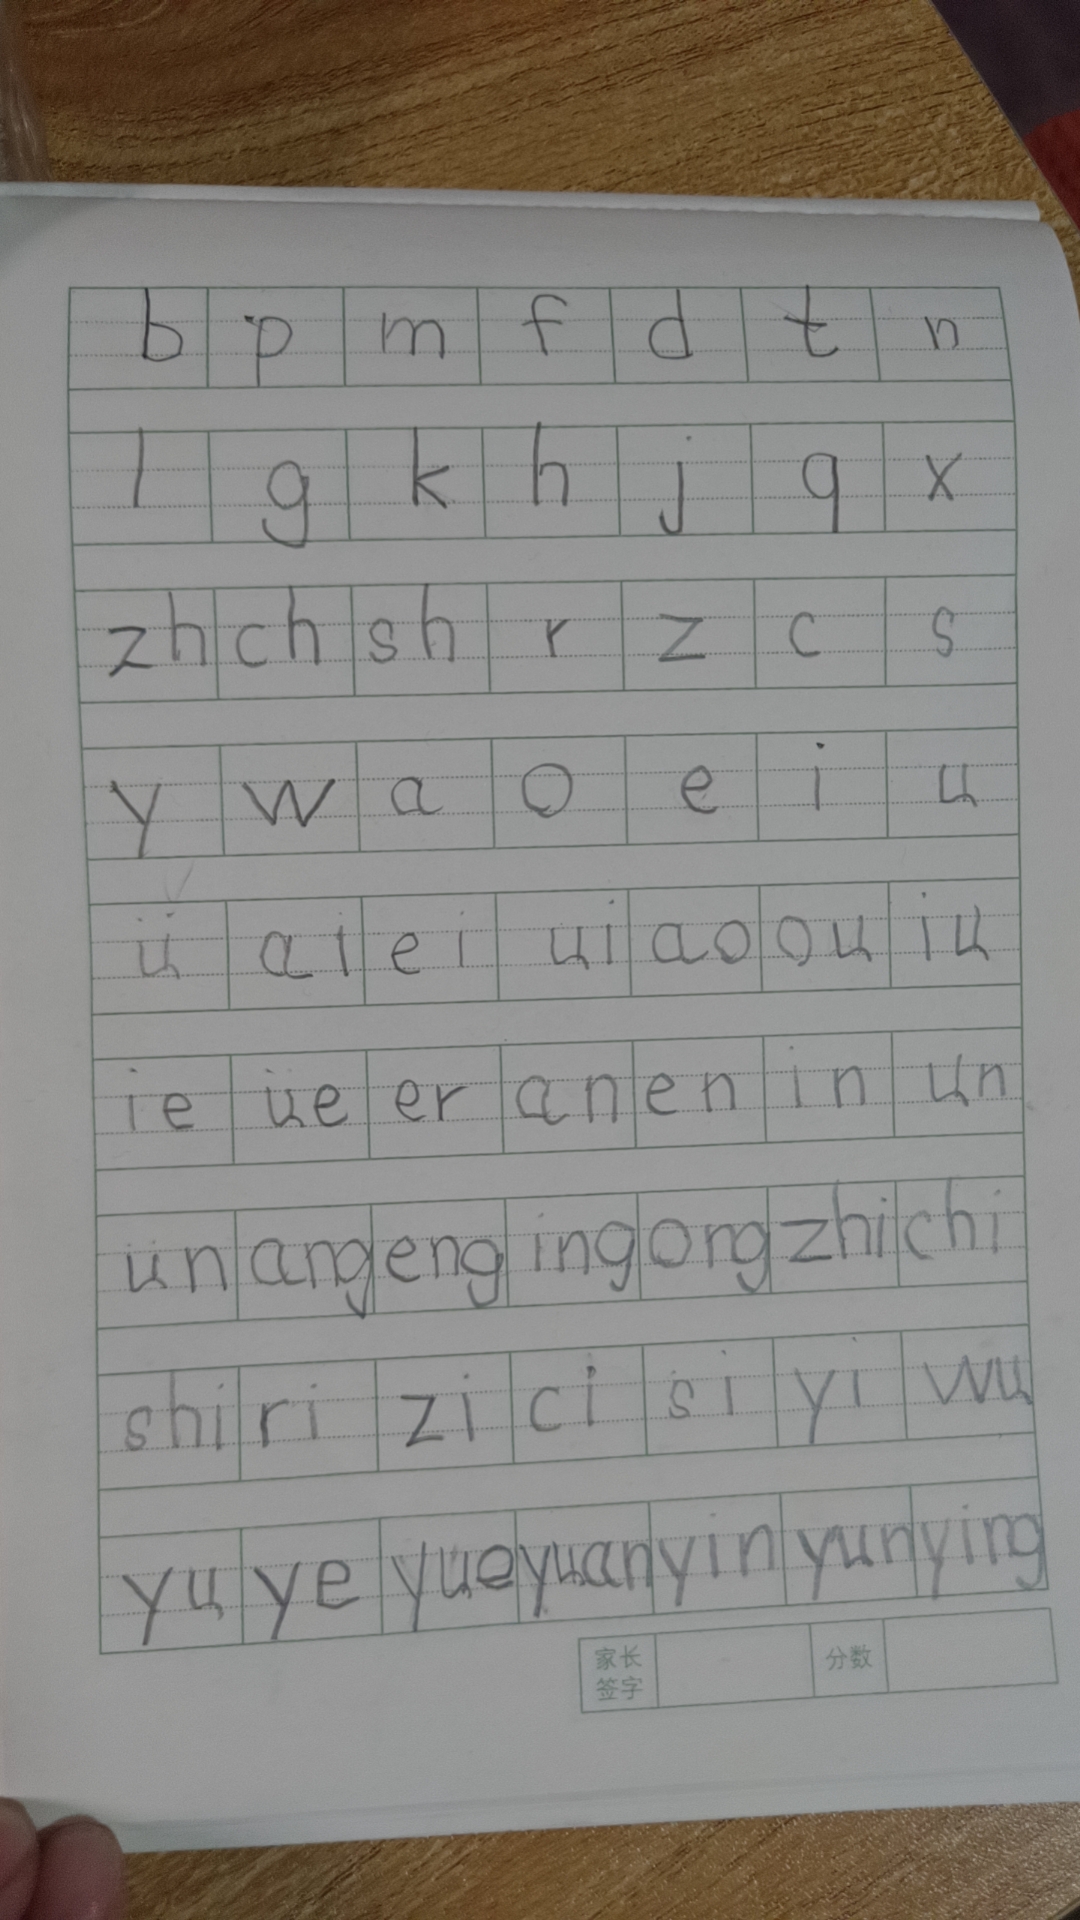 b p m f d t n
l g k h j q x
zh ch sh r z c s
y w a o e i u
ü ai ei ui ao ou iu
ie üe er an en in un
ün ang eng ing ong zhi chi
shi ri zi ci si yi wu
yu ye yue yuan yin yun ying
家长签字 分数